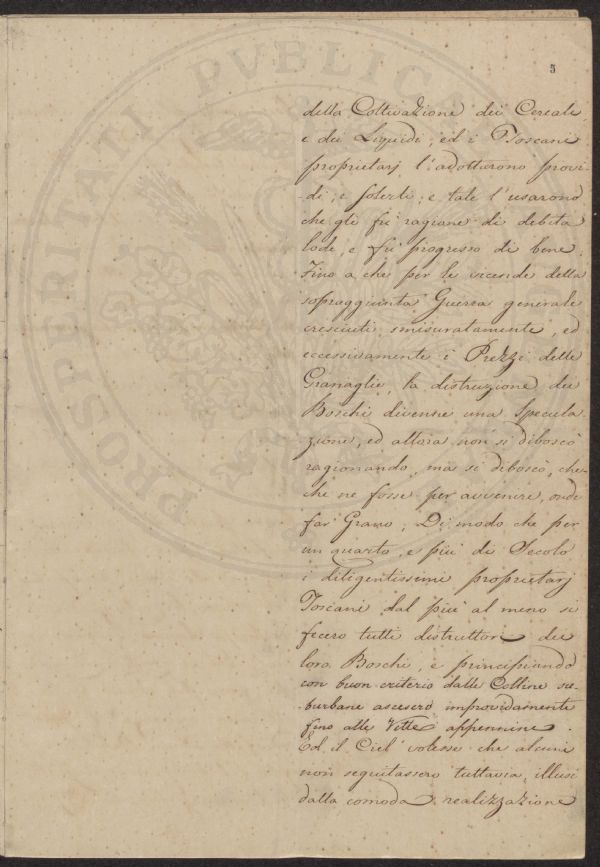 5
della Coltivazione dei Cereali
e dei Liquidi, ed i Toscani
proprietarj l'adottarono provi-
di, e solerti; e tale l'usarono
che gli fù ragione di debita
lode, e fù progresso di bene.
Fino a che per le vicende della
sopraggiunta Guerra generale
cresciuti smisuratamente, ed
eccessivamente i Prezzi delle
Granaglie, la distruzione dei
Boschi divenne una Specula
zione, ed allora non si diboscò
ragionando, ma si diboscò, che-
chè ne fosse per avvenire, onde
far Grano. Di modo che per
un quarto, e più di Secolo
i diligentissimi proprietarj
Toscani dal più al meno si
fecero tutti distruttori dei
loro Boschi, e principiando
con buon criterio dalle Colline su-
burbane ascesero improvidamente
fino alle Vette appennine.
Ed il Ciel volesse che alcuni
non seguitassero tuttavia, illusi
dalla comoda realizzazione
PROSPERITATI PVBLICAE